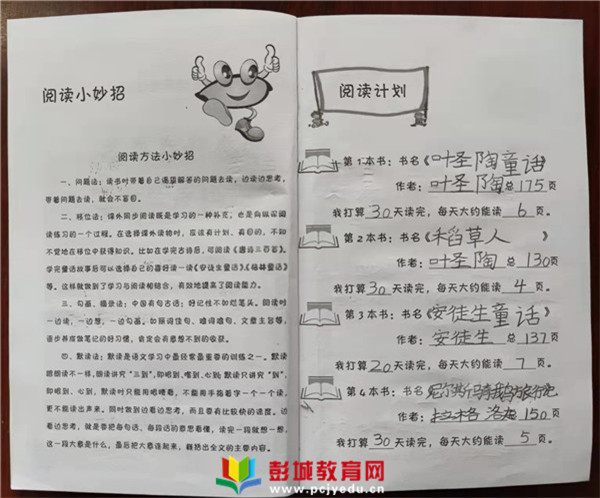 阅读小妙招
阅读方法小妙招
一、问题法：读书时带着自己渴望解答的问题去读，边读边思考，
带着问题去读，就会不盲目。
二、移位法：课外同步阅读既是学习的一种补充，也是向纵深阅
读练习的一个过程。在选择课外读物时，应该有计划，有目的，不知
不觉地在移位中获得知识。比如在学完古诗后，可阅读《唐诗三百首》。
学完童话故事后可以选择自己的喜好读一读《安徒生童话》、《格林童话》
等。这样就做到了学习与阅读相结合，有效地提高了阅读能力。
三、勾画、摘录法：中国有句古话：好记性不如烂笔头。阅读时
一边读，一边想，一边勾画。如预词佳句、难词难句、文章主旨等，
逐步养成做笔记的好习惯，肯定会有意想不到的收获。
四、默读法：默读是语文学习中最经常最重要的训练之一。默读
跟朗读不一样，朗读讲究“三到”，即眼到、嘴到、心到；默读只讲究“到”，
即眼到、心到。默读时只能用眼睛看，不能用手指着字一个一个读，
更不能读出声来。同时做到边看边思考，而且要有比较快的速度。边
看边思考，就是要把每句话、每段话的意思看懂，读完一段就想一想，
这一段大意是什么，最后把大意连起来，概括出全文的主要内容。
阅读计划
第1本书：书名《叶圣陶童话》
作者：叶圣陶 总175页
我打算30天读完，每天大约能读6页。
第2本书：书名《稻草人》
作者：叶圣陶 总130页
我打算30天读完，每天大约能读4页。
第3本书：书名《安徒生童话》
作者：安徒生 总137页
我打算20天读完，每天大约能读7页。
第4本书：书名 尼尔斯骑鹅旅行记
作者：拉格洛 150页
我打算30天读完，每天大约能读5页。
彭城教育网
www.pcjyedu.cn